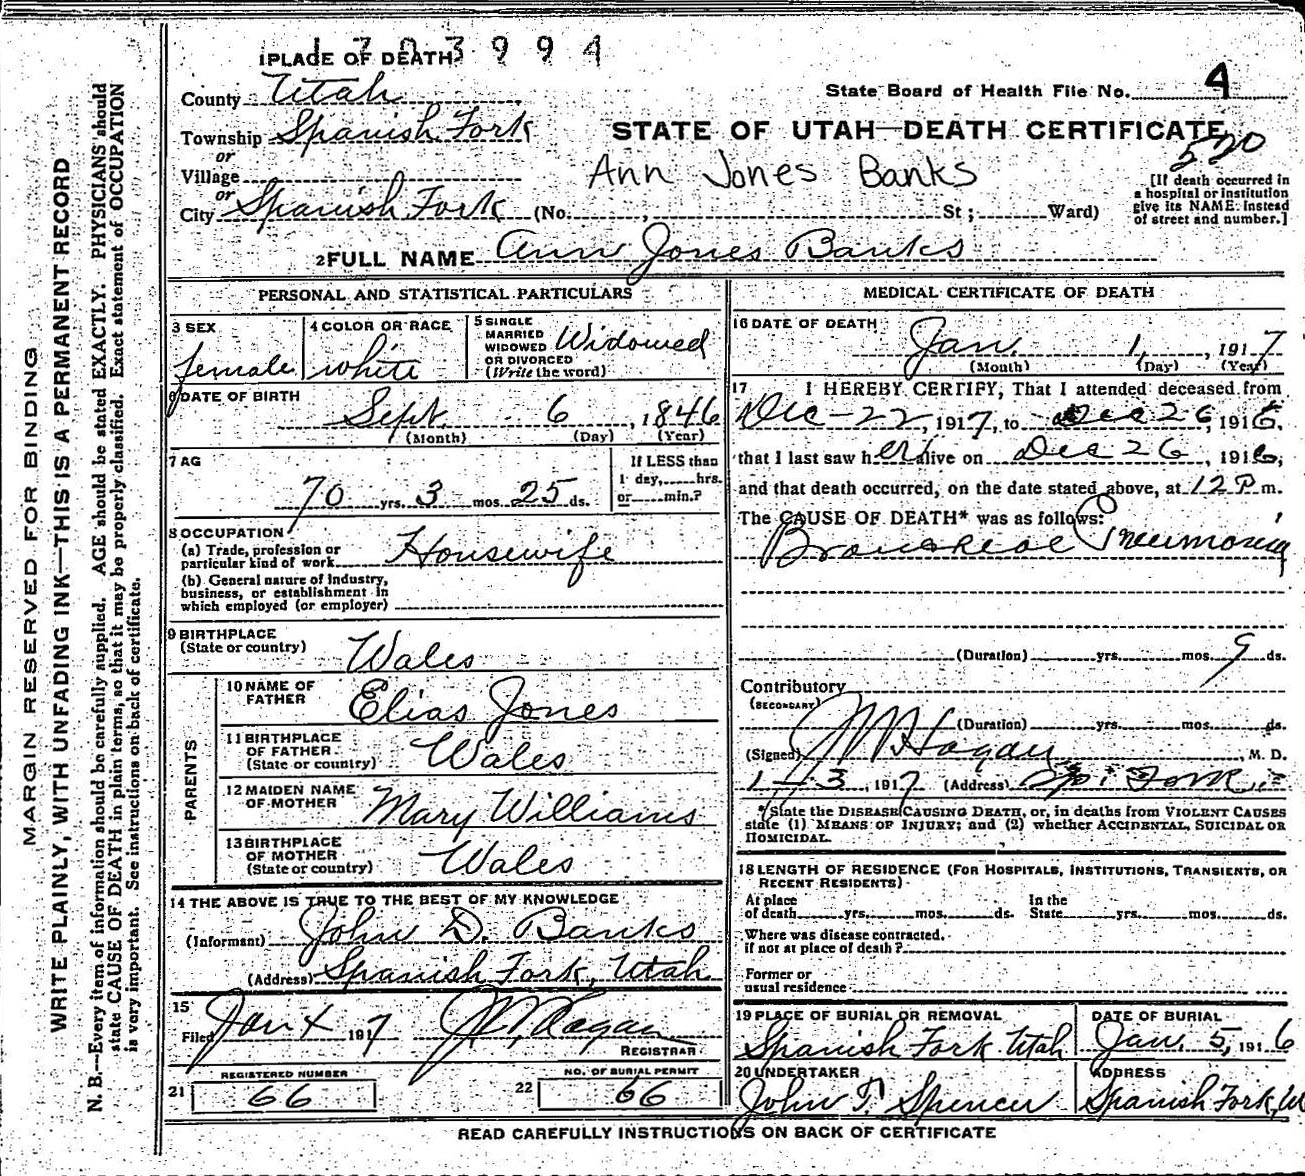 1703994
1 PLACE OF DEATH
County Utah
State Board of Health File No. 4
Township Spanish Fork
STATE OF UTAH—DEATH CERTIFICATE
or
Village
520
Ann Jones Banks
or
City Spanish Fork (No. , St; Ward)
[If death occurred in
a hospital or institution
give its NAME instead
of street and number.]
2 FULL NAME Ann Jones Banks
MARGIN RESERVED FOR BINDING
WRITE PLAINLY, WITH UNFADING INK—THIS IS A PERMANENT RECORD
N. B.—Every item of information should be carefully supplied. AGE should be stated EXACTLY. PHYSICIANS should
state CAUSE OF DEATH in plain terms, so that it may be properly classified. Exact statement of OCCUPATION
is very important. See instructions on back of certificate.
PERSONAL AND STATISTICAL PARTICULARS
3 SEX
female
4 COLOR OR RACE
white
5 SINGLE
MARRIED
WIDOWED
OR DIVORCED
(Write the word)
Widowed
6 DATE OF BIRTH
Sept. 6, 1846
(Month) (Day) (Year)
7 AG
70 yrs. 3 mos. 25 ds.
If LESS than
1 day, hrs.
or min.?
8 OCCUPATION
(a) Trade, profession or
particular kind of work Housewife
(b) General nature of industry,
business, or establishment in
which employed (or employer)
9 BIRTHPLACE
(State or country) Wales
PARENTS
10 NAME OF
FATHER Elias Jones
11 BIRTHPLACE
OF FATHER
(State or country) Wales
12 MAIDEN NAME
OF MOTHER Mary Williams
13 BIRTHPLACE
OF MOTHER
(State or country) Wales
14 THE ABOVE IS TRUE TO THE BEST OF MY KNOWLEDGE
(Informant) John D. Banks
(Address) Spanish Fork, Utah
15
Filed Jan 4 1917
REGISTRAR
21 REGISTERED NUMBER
66
22 NO. OF BURIAL PERMIT
66
MEDICAL CERTIFICATE OF DEATH
16 DATE OF DEATH
Jan. 1, 1917
(Month) (Day) (Year)
17 I HEREBY CERTIFY, That I attended deceased from
Dec-22, 1917, to Dec 26, 1916,
that I last saw her alive on Dec 26, 1916,
and that death occurred, on the date stated above, at 12 P m.
The CAUSE OF DEATH* was as follows:
Bronchial Pneumonia
(Duration) yrs. mos. 9 ds.
Contributory
(SECONDARY)
(Duration) yrs. mos. ds.
(Signed) Hagan, M. D.
1917 (Address) Sp. Fork
*State the DISEASE CAUSING DEATH, or, in deaths from VIOLENT CAUSES
state (1) MEANS OF INJURY; and (2) whether ACCIDENTAL, SUICIDAL OR
HOMICIDAL.
18 LENGTH OF RESIDENCE (FOR HOSPITALS, INSTITUTIONS, TRANSIENTS, OR
RECENT RESIDENTS)
At place In the
of death yrs. mos. ds. State yrs. mos. ds.
Where was disease contracted,
if not at place of death?
Former or
usual residence
19 PLACE OF BURIAL OR REMOVAL
Spanish Fork Utah
DATE OF BURIAL
Jan. 5, 1916
20 UNDERTAKER
John T. Spencer
ADDRESS
Spanish Fork, U
READ CAREFULLY INSTRUCTIONS ON BACK OF CERTIFICATE